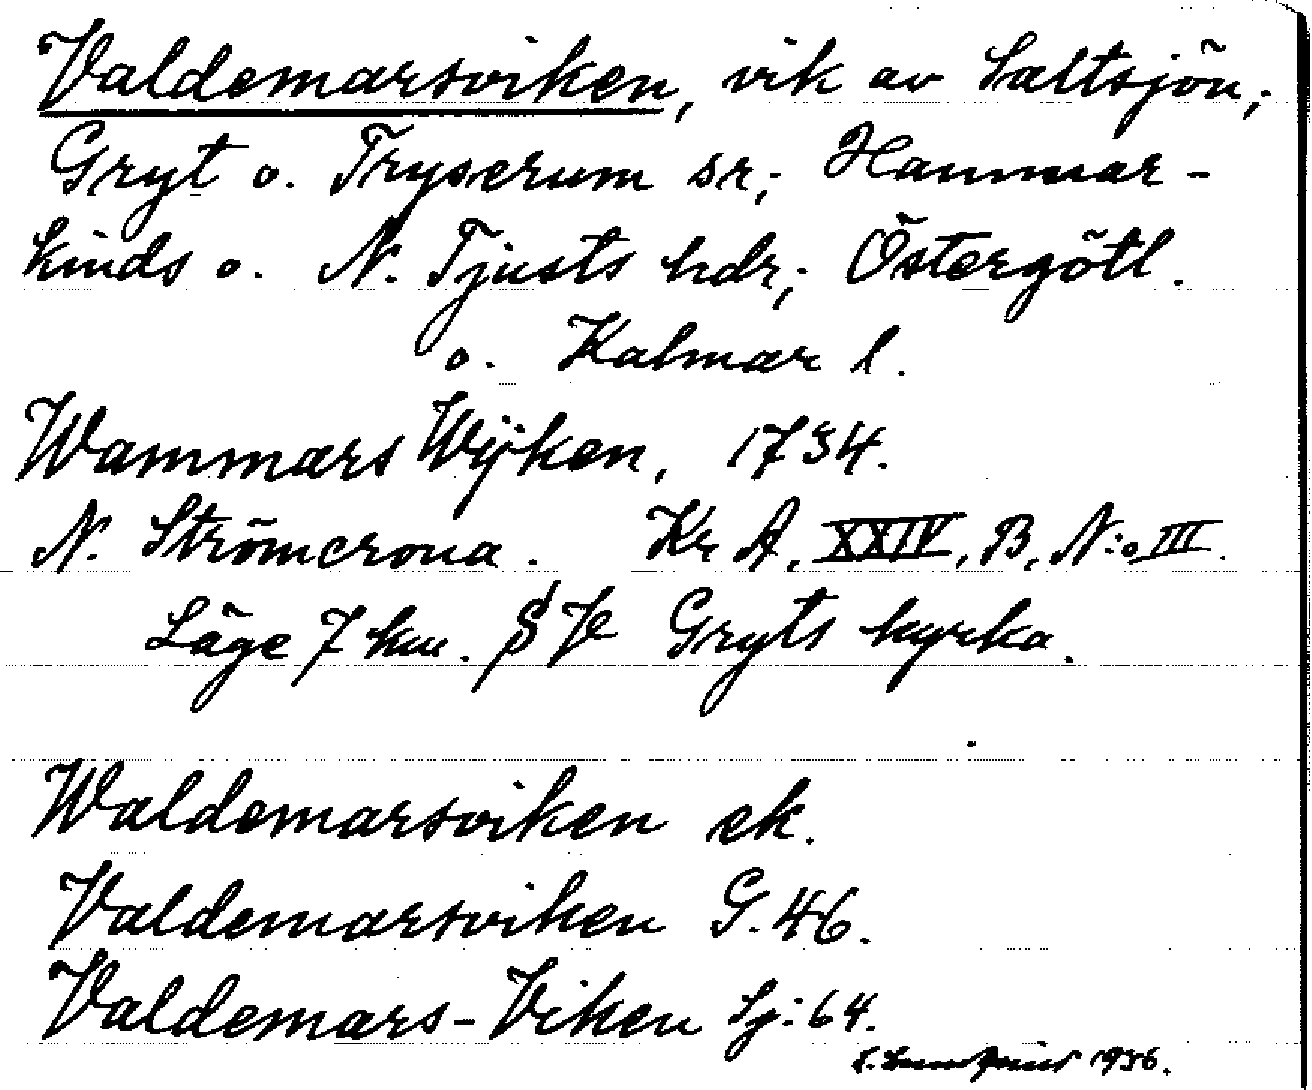 Valdemarsviken, vik av Saltsjön;
Gryt o. Tryserum sr; Hammar-
kinds o. N. Tjusts hdr; Östergötl.
o. Kalmar l.
Wammars Wijken, 1734.
N. Strömcrona. Kr A, XXIV, B, N:o III.
Läge 7 km. S V Gryts kyrka.
Waldemarsviken ek.
Valdemarsviken G. 46.
Valdemars-Viken Sj: 64.
1936.